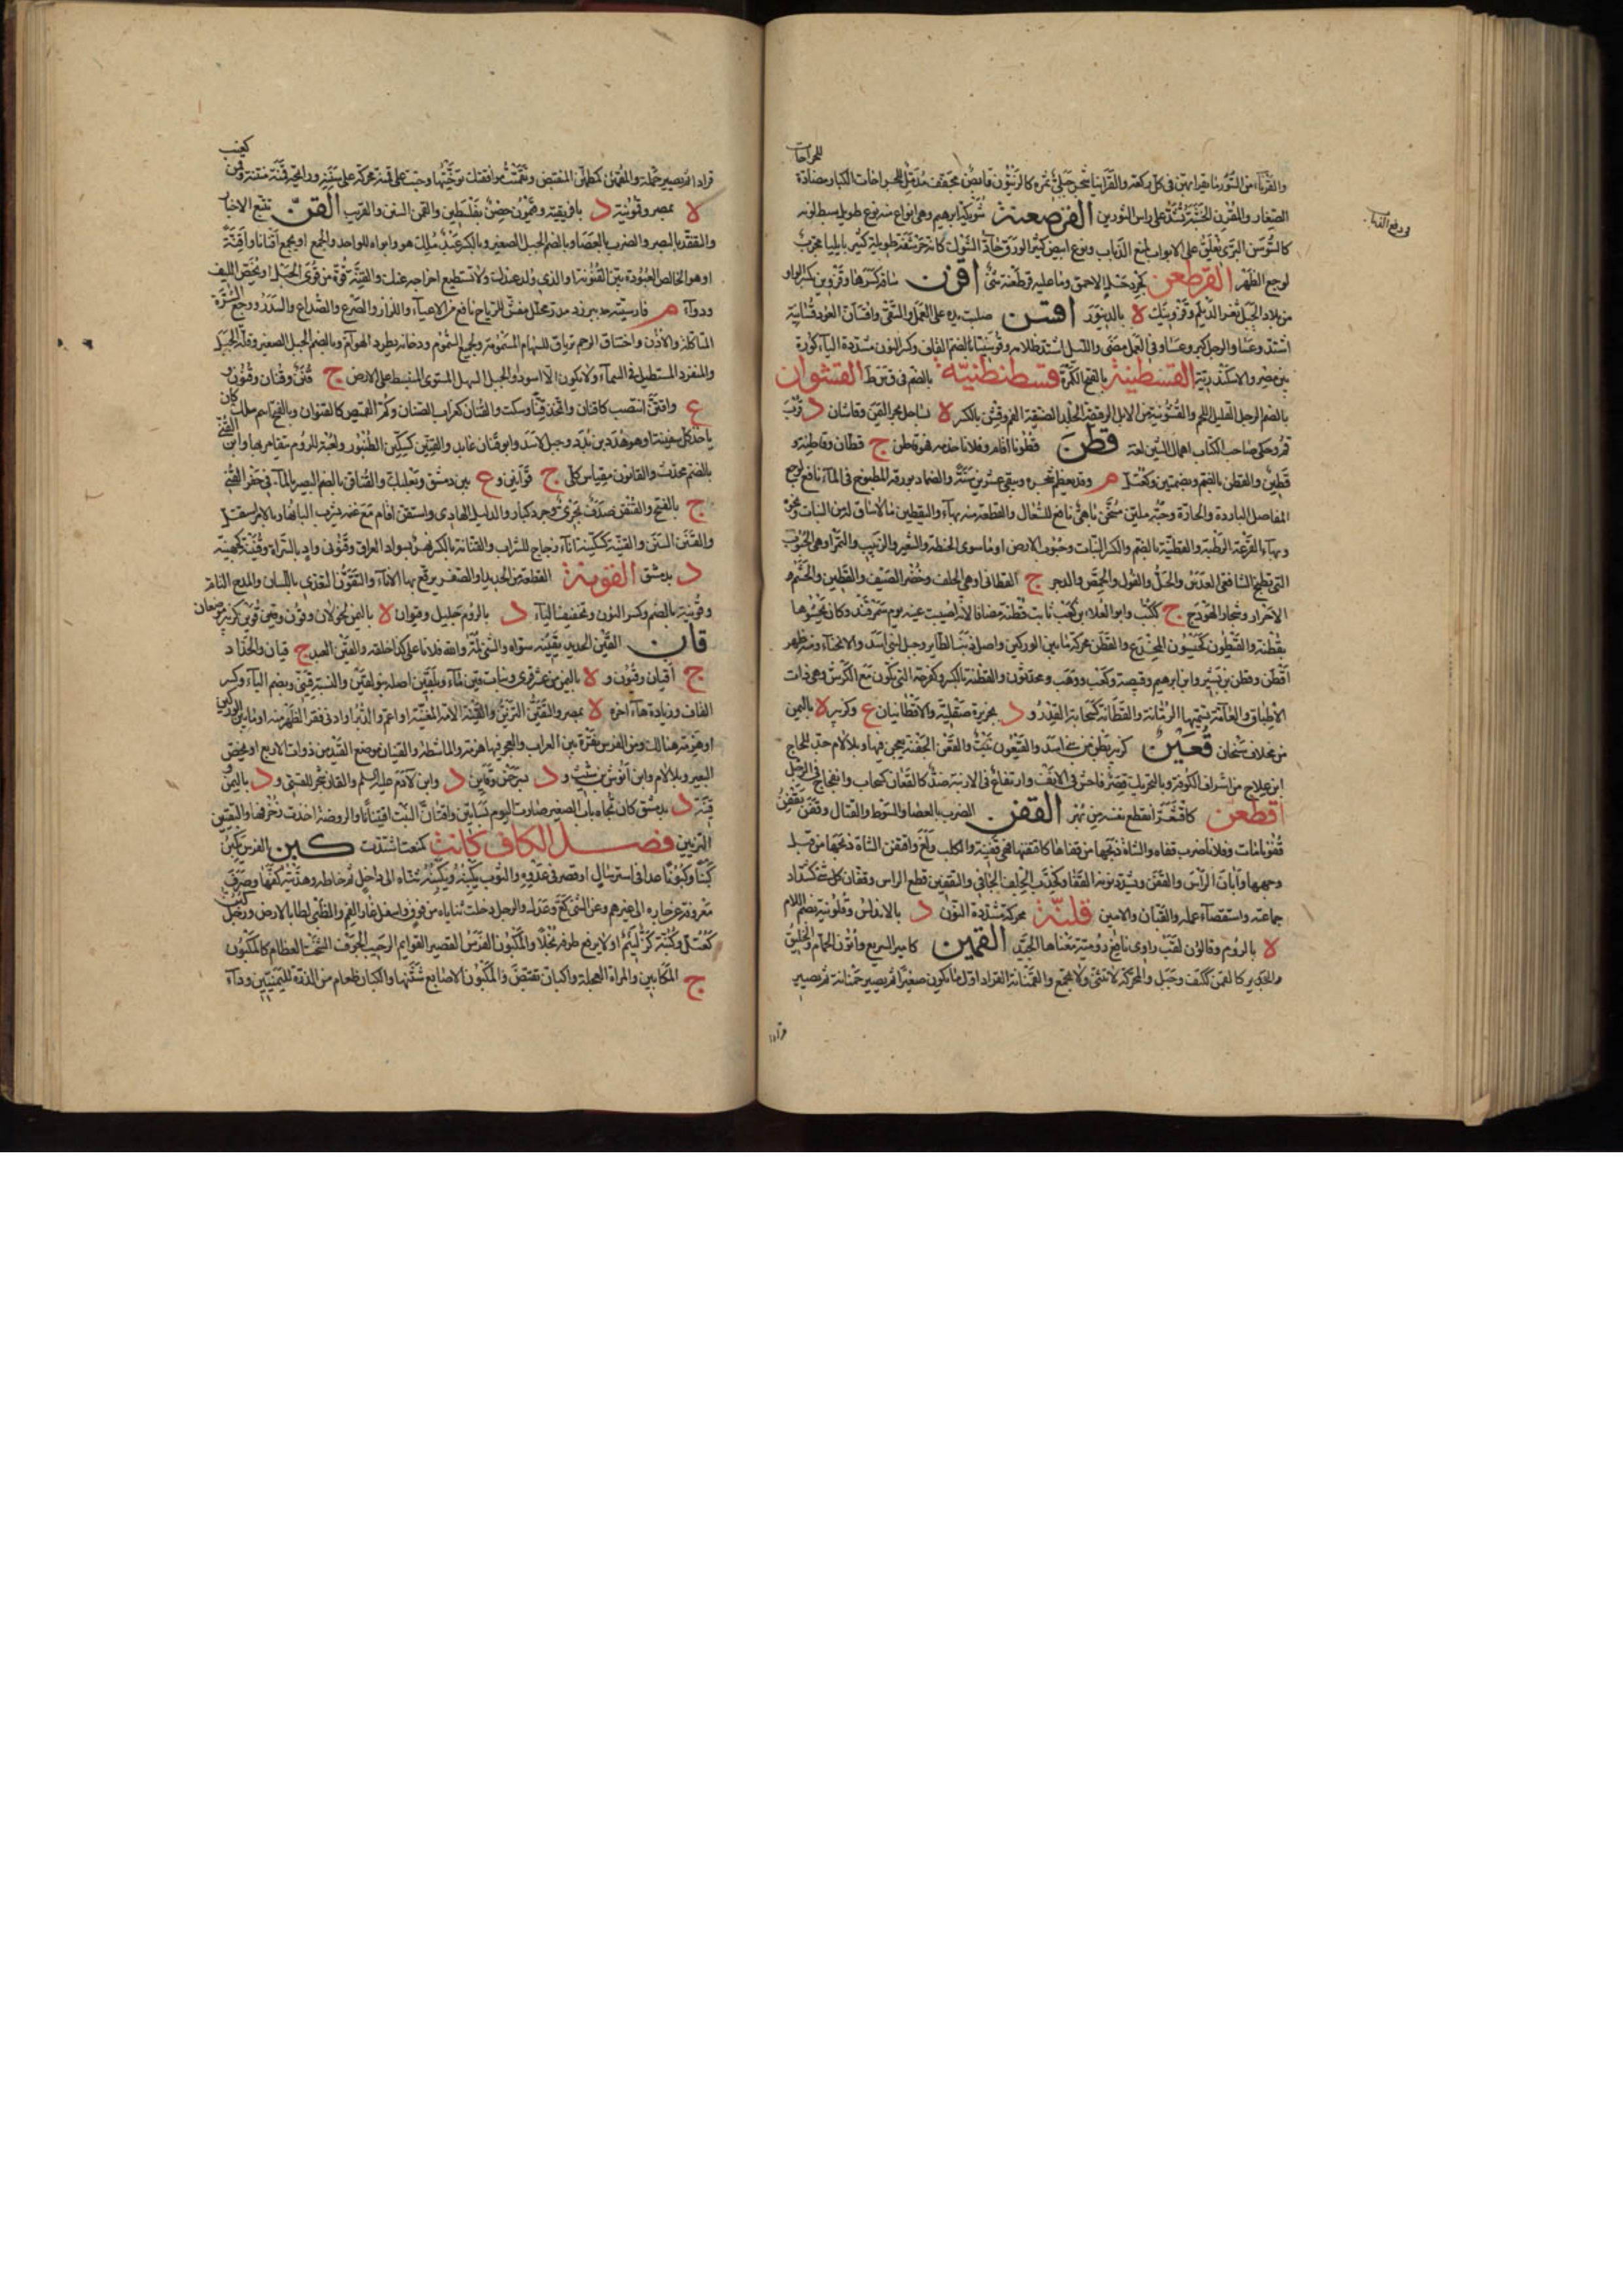 للجراحات
والقَرِينَا من السّور ما يقرأ بهن في كل ركعة والقَرَانيا شجر جبلي ثمره كالزيتون قابض مجفف مدمل للجراحات الكبار مضادة
الصغار والمقرن الخشبة تشد على رأس الثورين القرصعنة شويكة ابرهيم وهي انواع منه نوع طويل سبط لونه
كالسوسن البري يعلق على الابواب لمنع الذباب ونوع ابيض كثير الورق حاد الشوك كانه حرشفة طويلة كثير بايليا مجرب
لوجع الظهر القرطعن كجردحل الاحمق وما عليه قرطعنة شئ اقزن ساقه كسرها وقزوين بكسر الواو
من بلاد الجبل ثغر الديلم وقزوينك ه بالدينور اقسن صلبت يده على العمل والسقي واقسأن العود قسأنينة
اشتد وعسا والرجل كبر وعسا وفي العمل مضى والليل اشتد ظلامه وقوسينيا بالضم القاف وكسر النون مشددة الياء كورة
بين مصر والاسكندرية القسطنينة بالفتح الكمرة قسطنطنيّة بالضم في ق س ط القشوان
بالضم الرجل القليل اللحم والقشونية من الابل الرقيقة الجلد الضيقة الفم وقشن بالكسر ه بساحل بحر القين وقاشان د قرب
قم وحكى صاحب اللباب اهمال السين لغة قطن قطونا اقام وفلانا خدمه فهو قاطن ج قطان وقاطنة و
قطين والقطن بالضم وبضمتين وكعتل م وقد يعظم شجره ويبقى عشرين سنة والضماد بورقه المطبوخ في الماء نافع لوجع
المفاصل الباردة والحارة وحبه ملين مسخن باهي نافع للسعال والقطعة منه بهاء واليقطين ما لا ساق له من النبات ونحوه
وبهاء القرعة الرطبة والقطنية بالضم والكسر النبات وحبوب الارض او ما سوى الحنطة والشعير والزبيب والتمر او هي الحبوب
التي تطبخ الشافعي العدس والخلّر والفول والحمص والدجر ج القطاني او هي الخلف وخضر الصيف والقطين والحشم و
الاحرار وشجار الهودج ج ككتب وابو العلاء بن كعب ثابت قطنة مضافا لانه اصيبت عينه يوم سمرقند وكان يحشوها
بقطنة والقيطون كحيسون المخدع والقطن محركة ما بين الوركين واصل ذنب الطائر وجبل لبني اسد والانحناء ومنه ظهر
اقطن وقطن بن نسير وابن ابرهيم وقبيصة وكعب ووهب ومحدثون والقطنة بالكسر وكفرحة التي تكون مع الكرش وهي ذات
الاطباق والعامة تسميها الرمانة والقطانة كسحابة القدر و د بجزيرة صقلية والاقطانيان ع وكزبير ه باليمن
من مخلاف سنحان قعين كزبير بطن من بني اسد والقيعون نبت والقعن الجفنة يعجن فيها وبلا لام حد للحجاج
ابن علاج من اشراف الكوفة وبالتحريك قصر فاحش في الانف وارتفاع في الارنبة ضد كالقعان كسحاب وانفجاج في الرجل
اقطعن كاقشعر انقطع نفسه من بهر القفن الضرب بالعصا والسوط والقتال وقفن يقفن
قفونا مات وفلانا ضرب قفاه والشاة ذبحها من قفاها كاقتفنها فهي قفينة والكلب ولغ واقتفن الشاة ذبحها من قبل
وجهها وابان الرأس والقفن ويشدد نونه القفا وكخدب الجلف الجافي والتقفين قطع الراس وقفان كل شئ كشداد
جماعته واستقصاء علمه والقبان والامين قلنّة محركة مشددة النون د بالاندلس وقلونية بضم اللام
ه بالروم وقالون لقب راوي نافع رومية معناها الجيد القمين كامير السريع واتون الحمام والخليق
والجدير كالقمن ككتف وجبل والمحركة لا تثنى ولا تجمع والقمنانة القراد اول ما يكون صغيرا ثم يصير حمنانة ثم يصير
قرادا
كيضب
قرادا ثم يصير حلمة والمقمئن كمطمئن المنقبض وتقمنت موافقتك توخيتها وجئت على قمنه محركة على سننه ورائحة قمنة منتنة وقمن
ه بمصر وقمونية د بافريقية وقيمون حصن بفلسطين والقمن السنن والقريب القنّ تتبع الاخبار
والتفقد بالبصر والضرب بالعصا وبالضم الجبل الصغير وبالكسر عبد ملك هو وابواه للواحد والجمع او يجمع اقنانا واقنة
او هو الخالص العبودة بين القنونة او الذي ولد عندك ولا تستطيع اخراجه عنك والقنة قوة من قوى الحبل او يخص الليف
ودواء م فارسيته بيرزد مدر محلل مفش للرياح نافع من الاعياء والكزاز والصرع والصداع والسدر ووجع السن
المتاكلة والاذن واختناق الرحم ترياق للسهام المسمومة ولجميع السموم ودخانه يطرد الهوام وبالضم الجبل الصغير وقلة الجبل
والمنفرد المستطيل في السماء ولا يكون الا اسود او الجبل السهل المستوي المنبسط على الارض ج قنن وقنان وقنون
ع واقتن انتصب كاقنان واتخذ قنا وسكت والقنان كغراب الصنان وكم القميص كالقنوان وبالفتح اسم ملك كان
ياخذ كل سفينة او هو هدد بن بدد وجبل لاسد وابو قنان عابد والقنين كسكين الطنبور ولعبة للروم يتقامر بها وابن القني
بالضم محدث والقانون مقياس كل ج قوانين و ع بين دمشق وبعلبك والقناقن بالضم البصير بالماء في حفر القني
ج بالفتح والقنقن صدف بحري وجرذ كبار والدليل الهادي واستقن اقام مع غنمه يشرب البانها وبالامر استقل
والقنن السنن والقنينة كسكينة اناء زجاج للشراب والقنانة بالكسر نهر بسواد العراق وقنوني واد بالسراة وقنينة كجهينة
د بدمشق القونة القطعة من الحديد او الصفر يرقع بها الاناء والتقون التعدي باللسان والمدح التام
وقونية بالضم وكسر النون وتخفيف الياء د بالروم جليل وقيوان ه باليمن لخولان وقون وقوين كزبير موضعان
قان القين الحديد يقينه سواه والشئ لمه والله فلانا على كذا خلقه والقين العبد ج قيان والحداد
ج اقيان وقيون و ه باليمن من عثر قرى وبنات قين ماء وبلقين اصله بنو القين والنسبة قيني وبضم الياء وكسر
القاف وزيادة هاء اخره ه بمصر والتقين التزين والقينة الامة المغنية او اعم والدبر او ادنى فقر الظهر منه او ما بين الوركين
او هزمة هنالك ومن الفرس نقرة بين الغراب والعجز فيها هزمة والماشطة والقينان موضع القيد من ذوات الاربع او يخص
البعير وبلا لام وابن انوش بن شيث و د بسرخس وقاين د وابن لادم عليه السلم والقان شجر للقسي و د باليمن
قينة د بدمشق كان تجاه باب الصغير صارت اليوم بساتين واقتان النبت اقتينانا والروضة اخذت زخرفها والتقيين
التزيين فصــل الكاف كانت كمنعت اشتدت كبن الفرس يكبن
كبنا وكبونا عدا في استرسال او قصر في عدوه والثوب يكبنه ويكبنه ثناه الى داخل ثم خاطه وهديته كفها وصرف
معروفه عن جاره الى غيرهم وعن الشئ كع وعدل والرجل دخلت ثناياه من فوق واسفل غار الفم والظبي لطا بالارض ورجل كبن
كعتل وكبنة كز لئيم او لا يرفع طرفه بخلا والمكبون الفرس القصير القوايم الرحيب الجوف الشخت العظام كالكبون
ج المكابين والمراة العجلة واكبان تقبض والمكبون الاصابع شثنها والكبان طعام من الذرة لليمنيين وداء